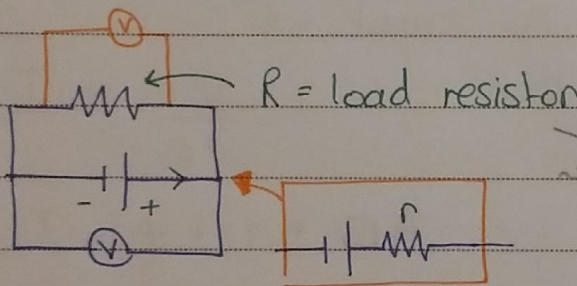 V
R = load resistor
- +
r
V